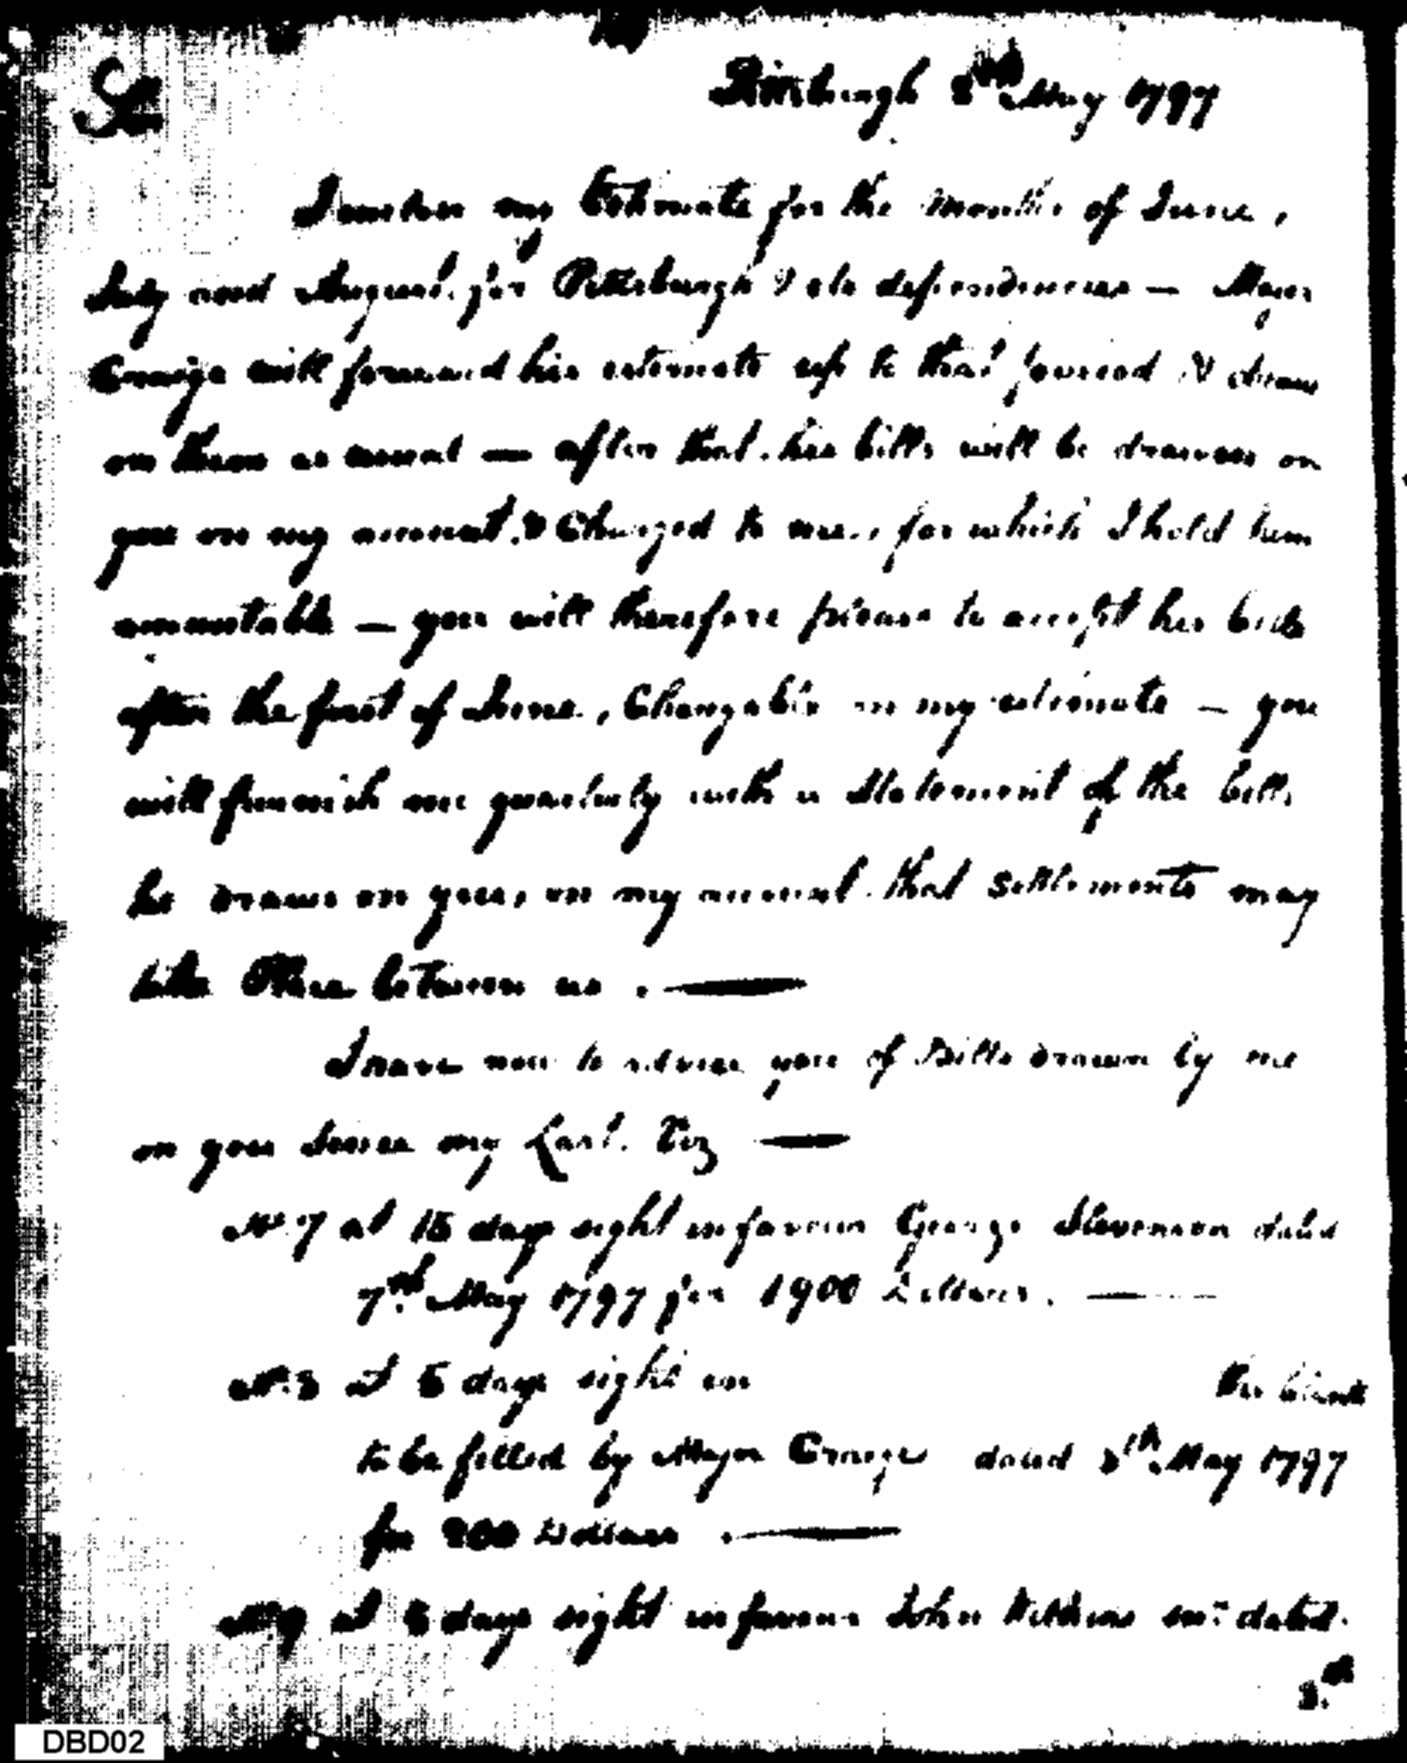 Sir
Pittsburgh 8th May 1797
I enclose my Estimate for the Months of June,
July and August for Pittsburgh & its dependencies — Major
Craige will forward his estimate up to that period & draw
on them as usual — after that his bills will be drawn on
you on my account, & Charged to me, for which I hold him
accountable — you will therefore please to accept his bills
after the first of June, Chargable on my estimate — you
will furnish me quarterly with a Statement of the bills
he draws on you, on my account that settlements may
take Place between us. —
I have now to advise you of Bills drawn by me
on you Since my Last. Viz —
No. 7 at 15 days sight in favour George Stevenson dated
7th May 1797 for 1900 Dollars. —
No. 8 at 5 days sight in the blank
to be filled by Major Craige dated 8th May 1797
for 200 Dollars. —
No. 9 at 5 days sight in favour John Wilkins Snr dated
8th
DBD02